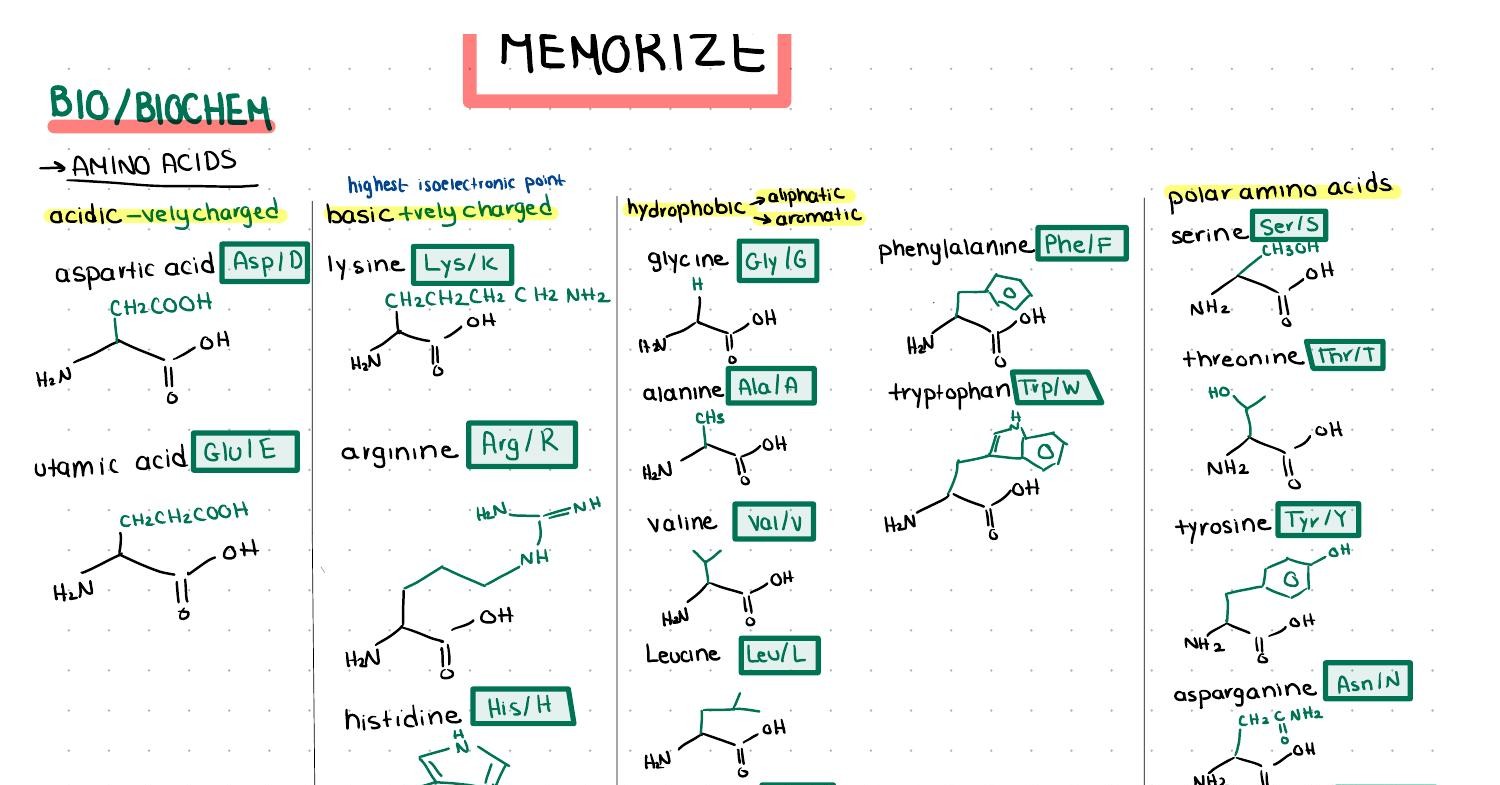 MEMORIZE
BIO/BIOCHEM
→ AMINO ACIDS
acidic -vely charged
aspartic acid Asp/D
CH2COOH
OH
H2N
O
utamic acid Glu/E
CH2CH2COOH
OH
H2N
O
highest isoelectronic point
basic +vely charged
lysine Lys/K
CH2CH2CH2 CH2 NH2
OH
H2N
O
arginine Arg/R
H2N NH
NH
OH
H2N
O
histidine His/H
H
N
hydrophobic → aliphatic
→ aromatic
glycine Gly/G
H
OH
H2N
O
alanine Ala/A
CH3
OH
H2N
O
valine Val/V
OH
H2N
O
Leucine Leu/L
OH
H2N
O
phenylalanine Phe/F
OH
H2N
O
tryptophan Trp/W
H
N
OH
H2N
O
polar amino acids
serine Ser/S
CH3OH
OH
NH2
O
threonine Thr/T
HO
OH
NH2
O
tyrosine Tyr/Y
OH
OH
NH2
O
asparganine Asn/N
CH2 C NH2
O
OH
NH2